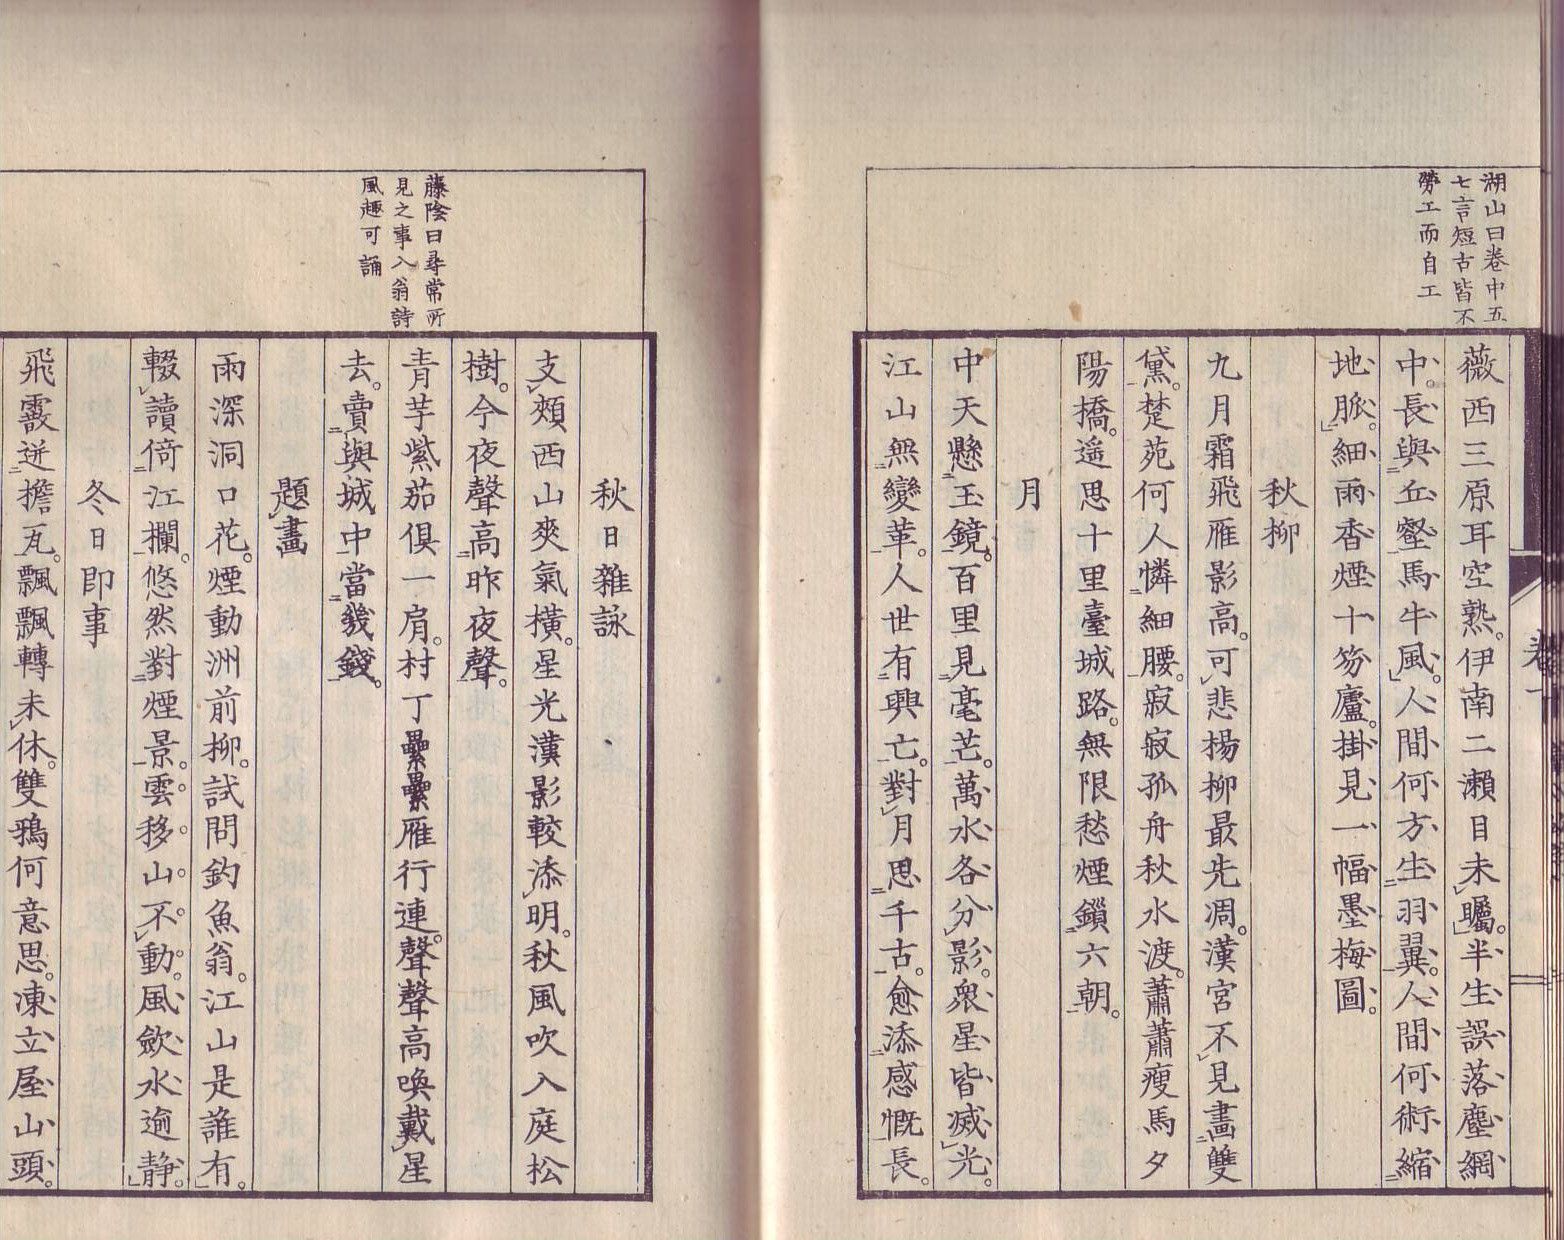 湖山曰卷中五
七言短古皆不
勞工而自工
薇西三原耳空熟。伊南二瀨目未矚。半生誤落塵網
中。長與丘壑馬牛風。人間何方生羽翼。人間何術縮
地脈。細雨香煙十笏廬。掛見一幅墨梅圖。
秋柳
九月霜飛雁影高。可悲楊柳最先凋。漢宮不見畫雙
黛。楚苑何人憐細腰。寂寂孤舟秋水渡。蕭蕭瘦馬夕
陽橋。遥思十里臺城路。無限愁煙鎖六朝。
月
中天懸玉鏡。百里見毫芒。萬水各分影。衆星皆滅光。
江山無變革。人世有興亡。對月思千古。愈添感慨長。
藤陰曰尋常所
見之事入翁詩
風趣可誦
秋日雜詠
支頰西山爽氣橫。星光漢影較添明。秋風吹入庭松
樹。今夜聲高昨夜聲。
青芋紫茄俱一肩。村丁纍纍雁行連。聲聲高喚戴星
去。賣與城中當幾錢。
題畫
雨深洞口花。煙動洲前柳。試問釣魚翁。江山是誰有。
輟讀倚江欄。悠然對煙景。雲移山不動。風歛水逾静。
冬日即事
飛霰迸擔瓦。飄飄轉未休。雙鴉何意思。凍立屋山頭。